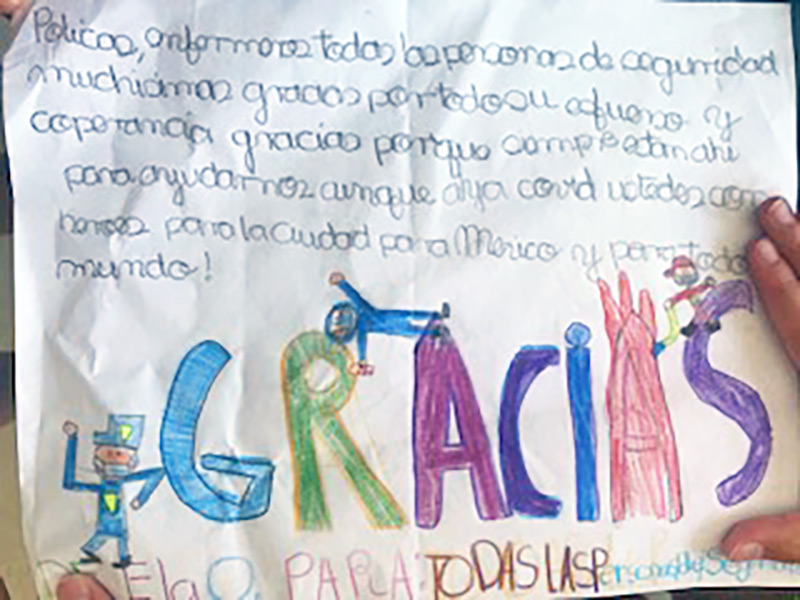 Policas, enfermeros todas las personas de seguridad
muchicimas gracias por todo su esfuerso y
coperancia gracias porque siempre estan ahi
para ayudarnos aunque alla covid ustedes son
heroes para la ciudad para Mexico y para todo
mundo!
GRACIAS
DE Ela O. PARA: TODAS LAS Personas de Segurida